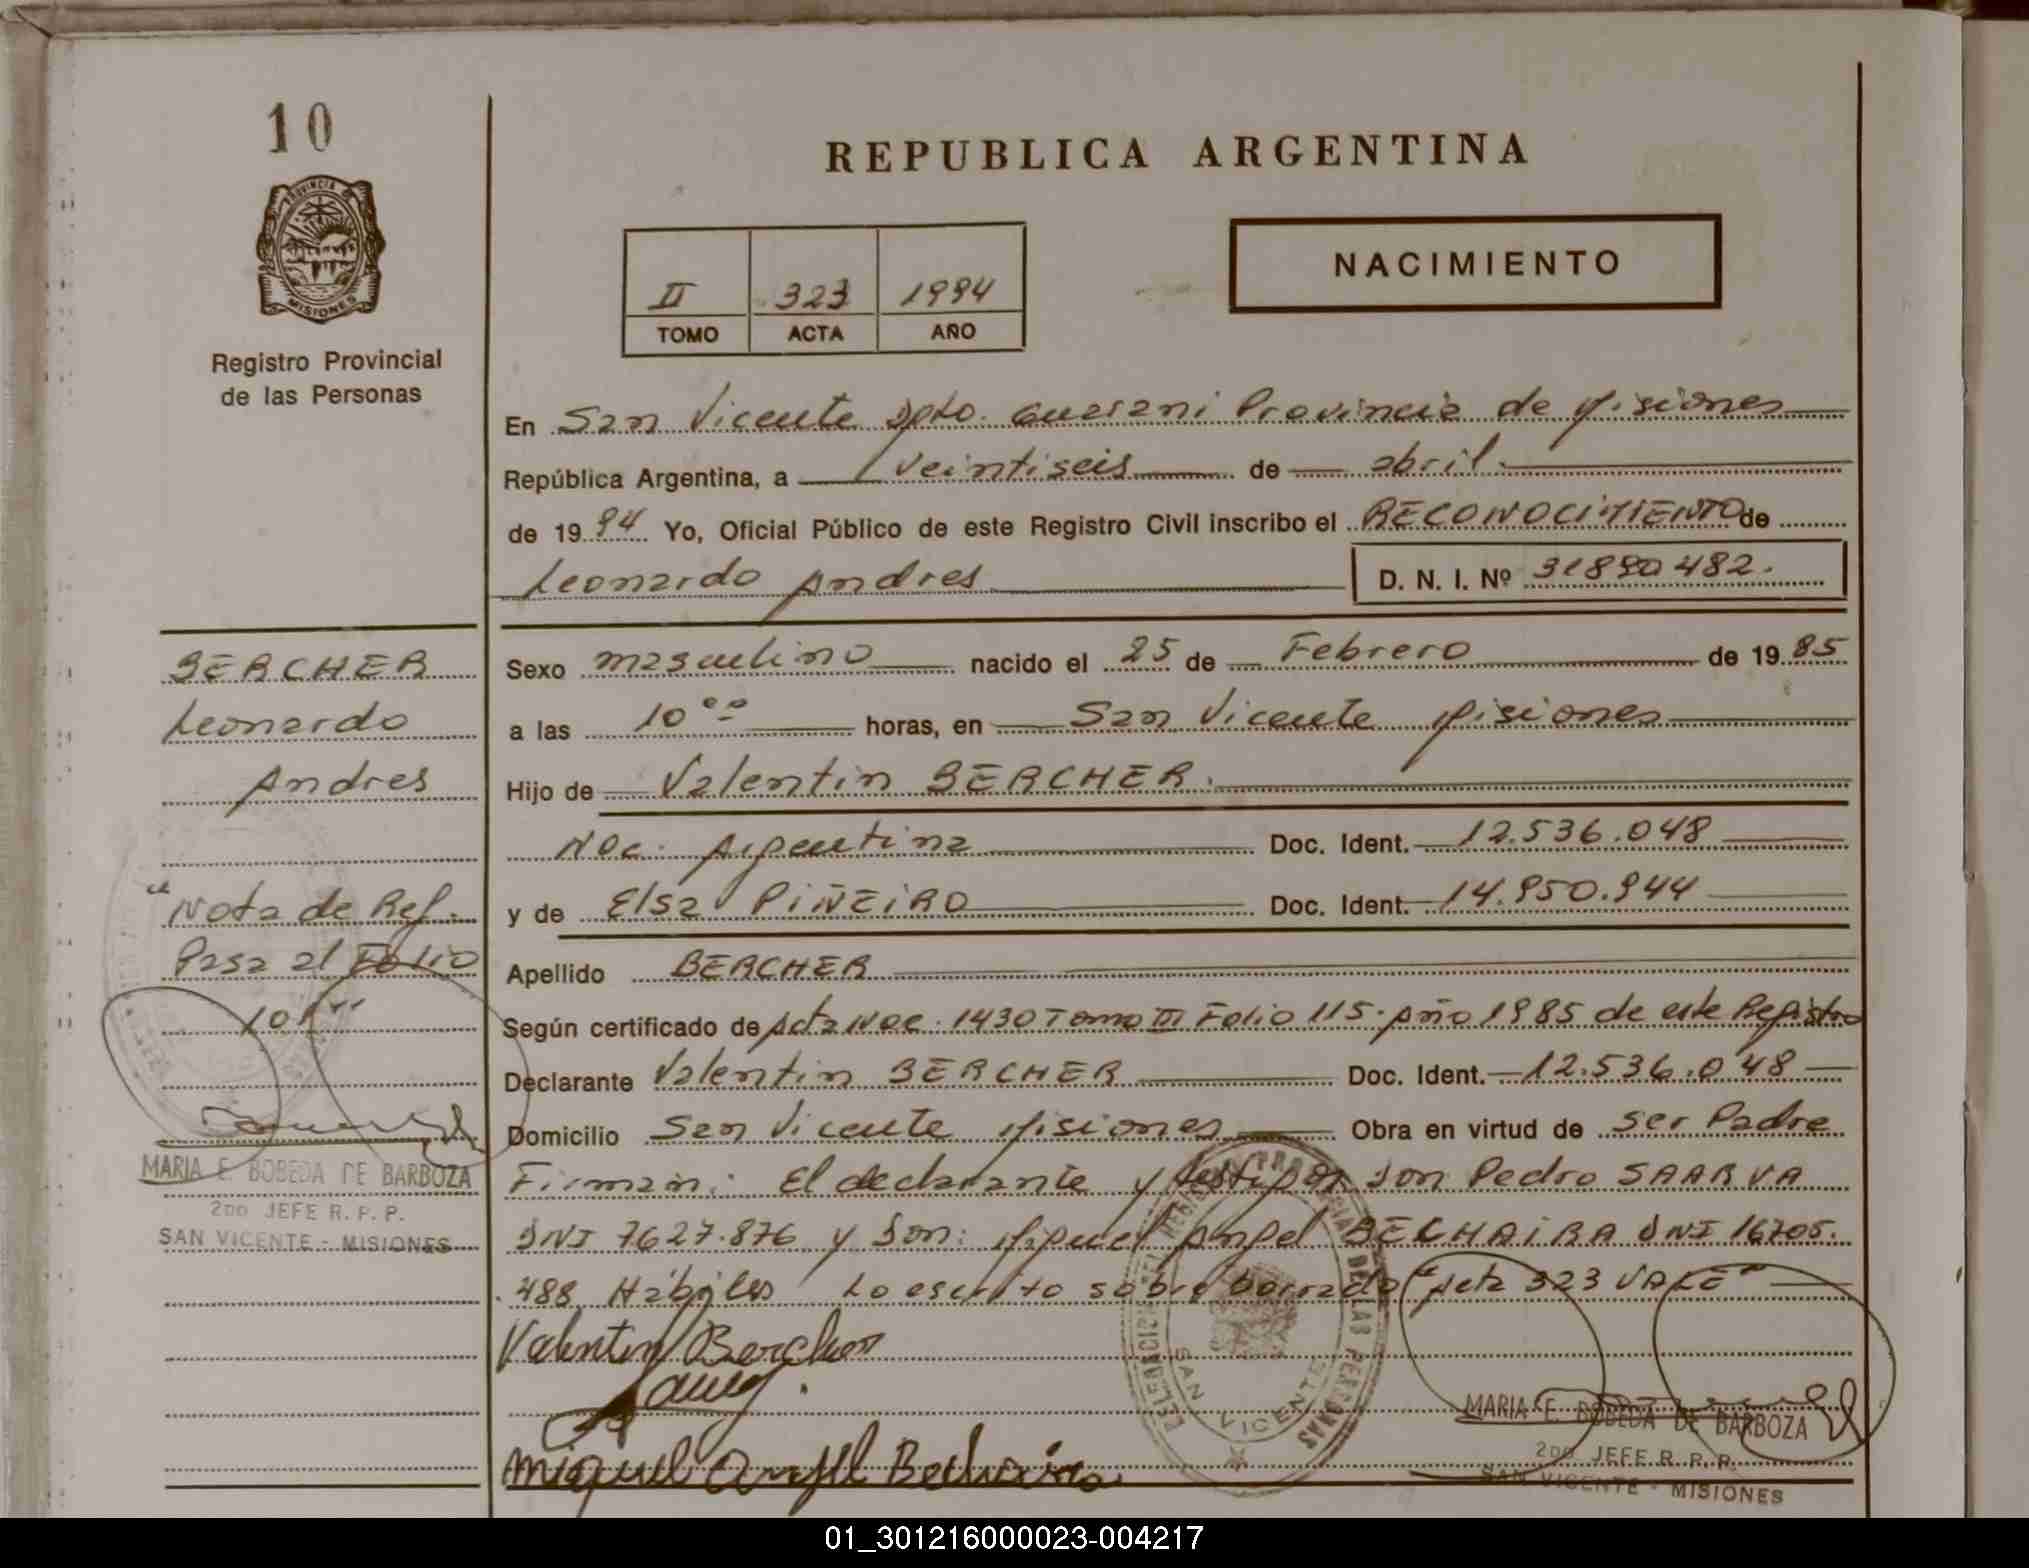 10
PROVINCIA DE
MISIONES
Registro Provincial
de las Personas
REPUBLICA ARGENTINA
II 323 1994
TOMO ACTA AÑO
NACIMIENTO
En San Vicente Dpto. Guarani Provincia de Misiones
República Argentina, a veintiseis de abril
de 1994 Yo, Oficial Público de este Registro Civil inscribo el RECONOCIMIENTO de
Leonardo Andres D. N. I. Nº 31890482.
BERCHER
Leonardo
Andres
"Nota de Ref.
Pasa al Folio
101"
MARIA E. BOBEDA DE BARBOZA
2DO JEFE R. P. P.
SAN VICENTE - MISIONES
Sexo masculino nacido el 25 de Febrero de 1985
a las 10 00 horas, en San Vicente Misiones
Hijo de Valentin BERCHER.
Nac. Argentina Doc. Ident. 12.536.048
y de Elsa PIÑEIRO Doc. Ident. 14.950.944
Apellido BERCHER
Según certificado de Acta Nac. 1430 Tomo III Folio 115. Año 1985 de este Registro
Declarante Valentin BERCHER Doc. Ident. 12.536.048
Domicilio San Vicente Misiones Obra en virtud de ser Padre
Firman: El declarante y testigos Don Pedro SAARVA
DNI 7627.876 y Don: Miguel Angel BECHAIRA DNI 16705.
488 Hábiles Lo escrito sobre borrado "Acta 323 VALE"
Valentin Bercher
Miguel Angel Bechaira
SAN VICENTE
MARIA E. BOBEDA DE BARBOZA
2DO JEFE R. P. P.
SAN VICENTE - MISIONES
01_301216000023-004217